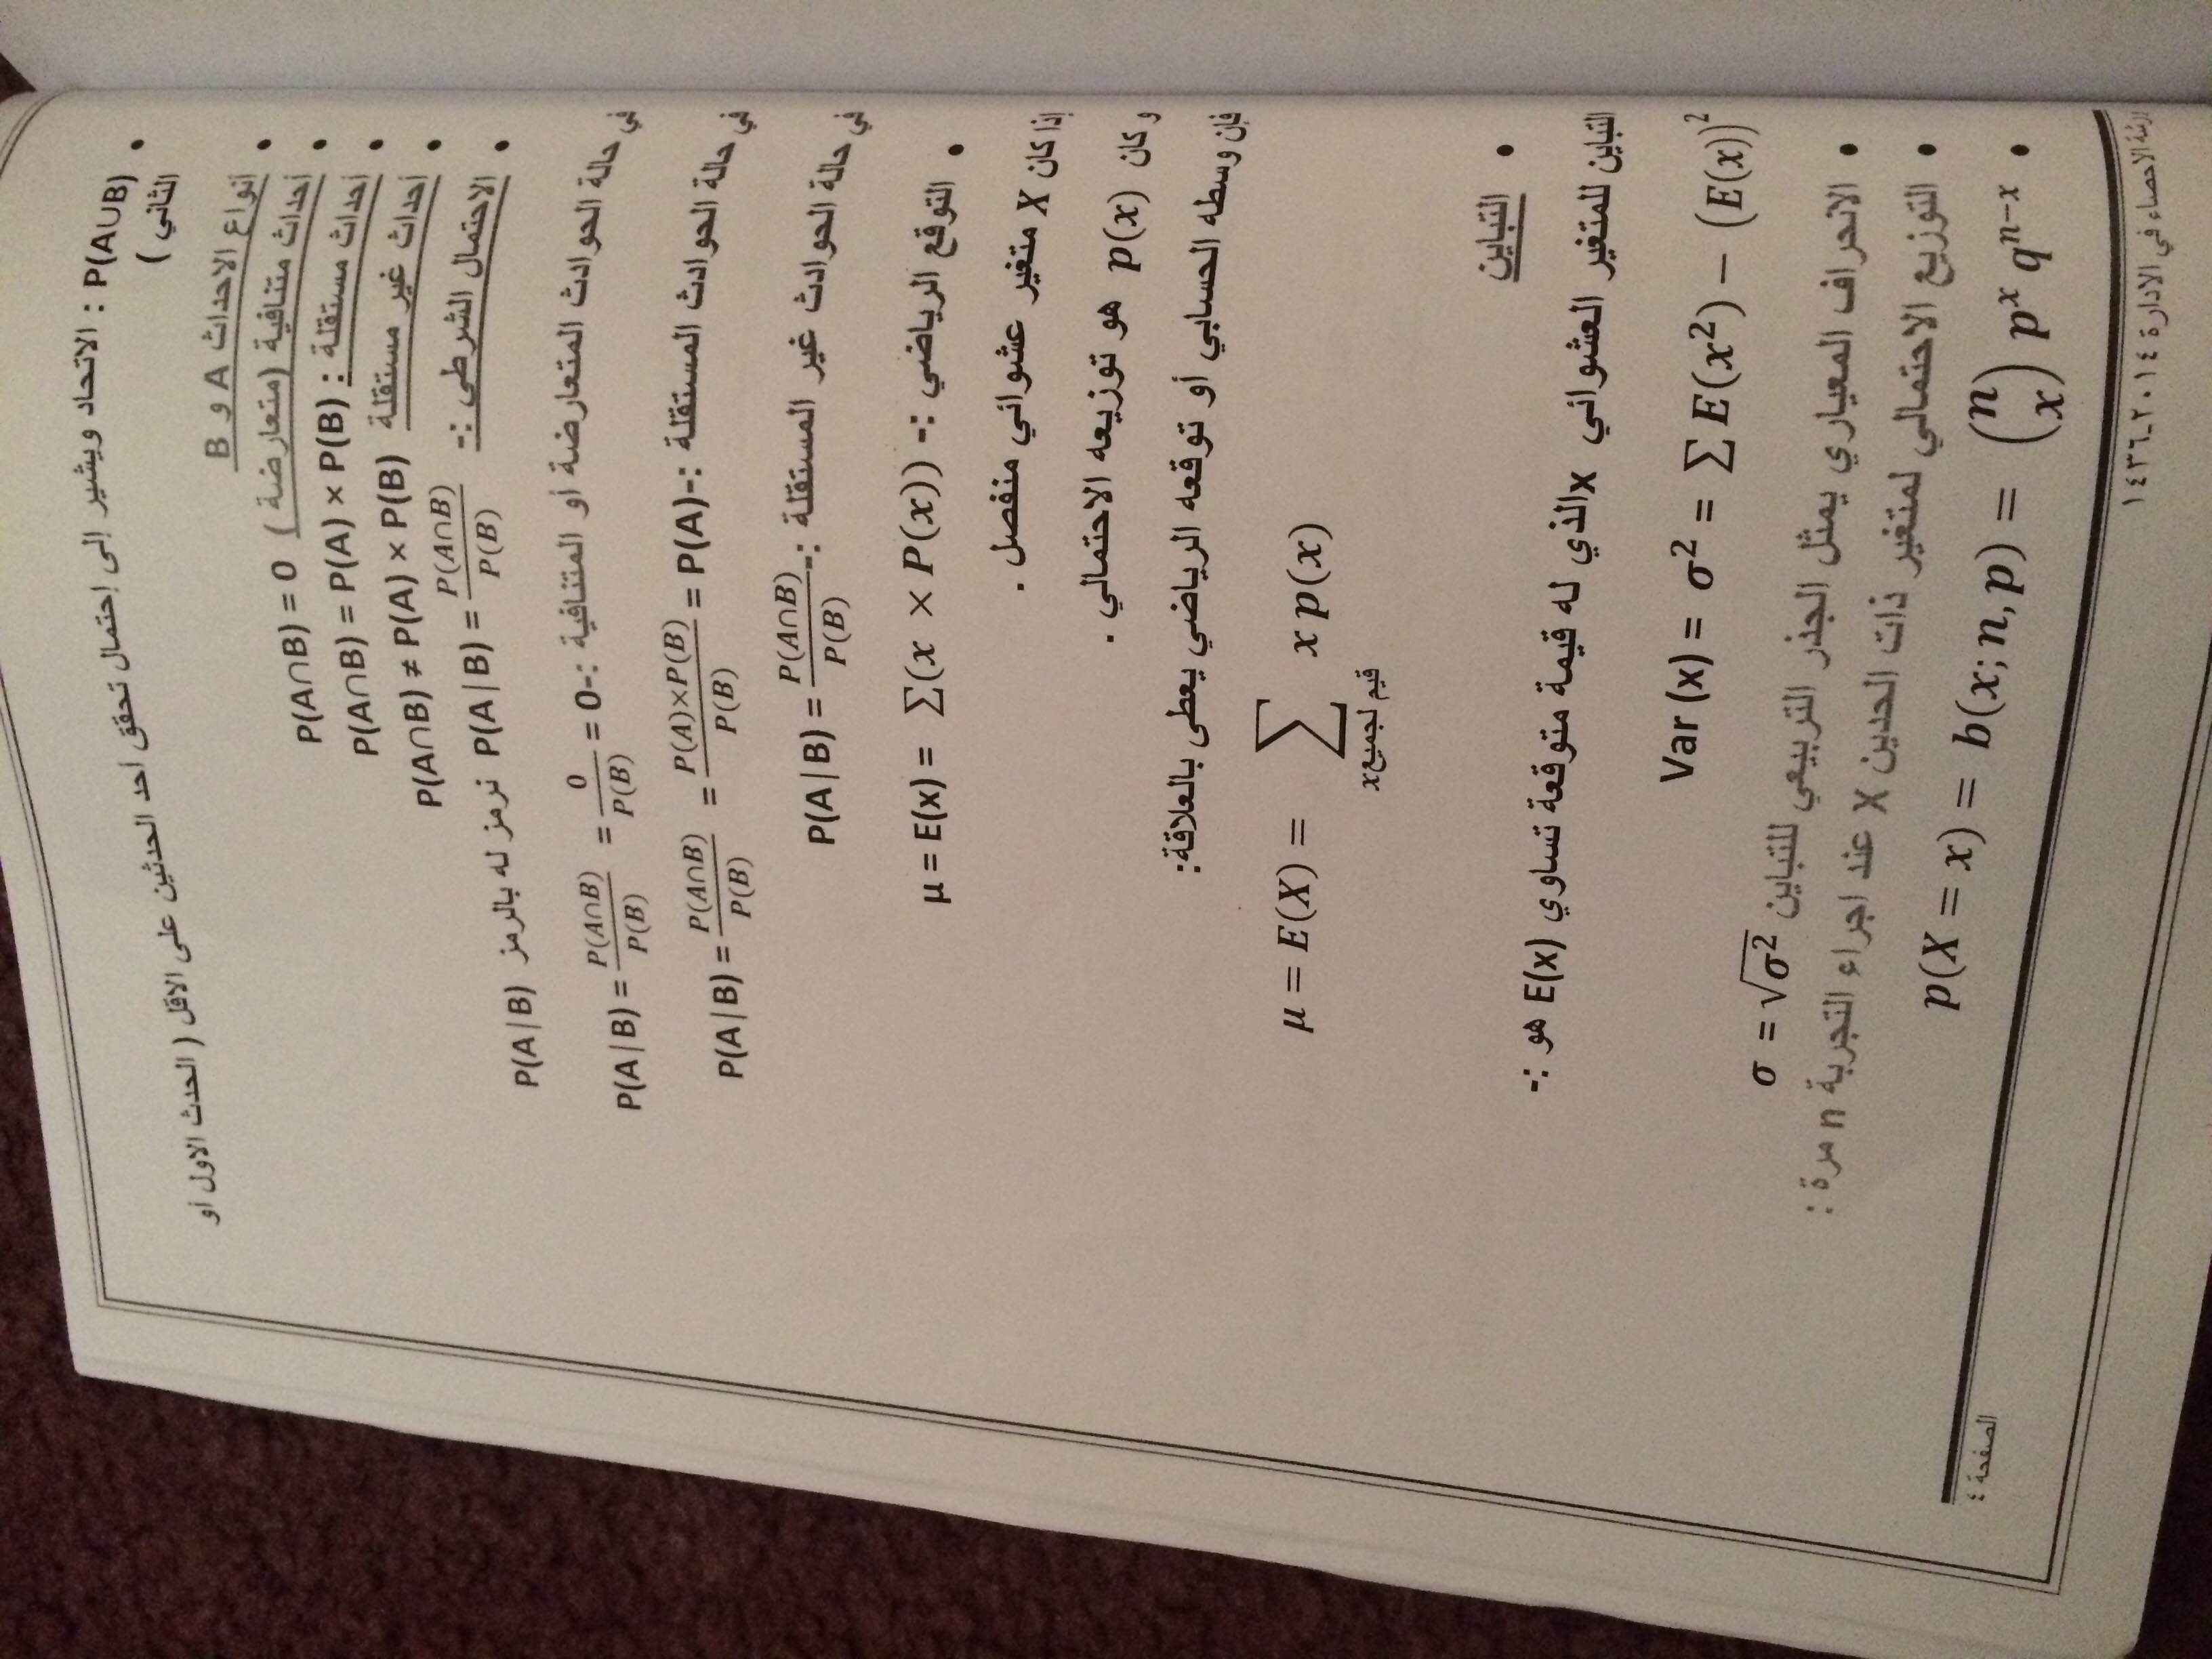 • P(A∪B) : الاتحاد ويشير إلى إحتمال تحقق احد الحدثين على الاقل ( الحدث الاول أو
الثاني )
• أنواع الاحداث A و B
• أحداث متنافية (متعارضة ) P(A∩B) = 0
• أحداث مستقلة : P(A∩B) = P(A) × P(B)
• أحداث غير مستقلة P(A∩B) ≠ P(A) × P(B)
• الاحتمال الشرطي :- نرمز له بالرمز P(A|B) P(A|B) = P(A∩B)/P(B)
في حالة الحوادث المتعارضة أو المتنافية :- P(A|B) = P(A∩B)/P(B) = 0/P(B) = 0
في حالة الحوادث المستقلة :- P(A|B) = P(A∩B)/P(B) = P(A)×P(B)/P(B) = P(A)
في حالة الحوادث غير المستقلة :- P(A|B) = P(A∩B)/P(B)
• التوقع الرياضي :- μ = E(x) = ∑(x × P(x))
إذا كان X متغير عشوائي منفصل .
و كان p(x) هو توزيعه الاحتمالي .
فإن وسطه الحسابي أو توقعه الرياضي يعطى بالعلاقة:
μ = E(X) = ∑ x p(x)
لجميع قيم x
• التباين
التباين للمتغير العشوائي x الذي له قيمة متوقعة تساوي E(x) هو :-
Var (x) = σ² = ∑ E(x²) − (E(x))²
• الانحراف المعياري يمثل الجذر التربيعي للتباين σ = √σ²
• التوزيع الاحتمالي لمتغير ذات الحدين X عند اجراء التجربة n مرة :
• p(X = x) = b(x; n, p) = (n x) pˣ qⁿ⁻ˣ
الاحصاء في الادارة ٢٠١٤-١٤٣٦
الصفحة ٤